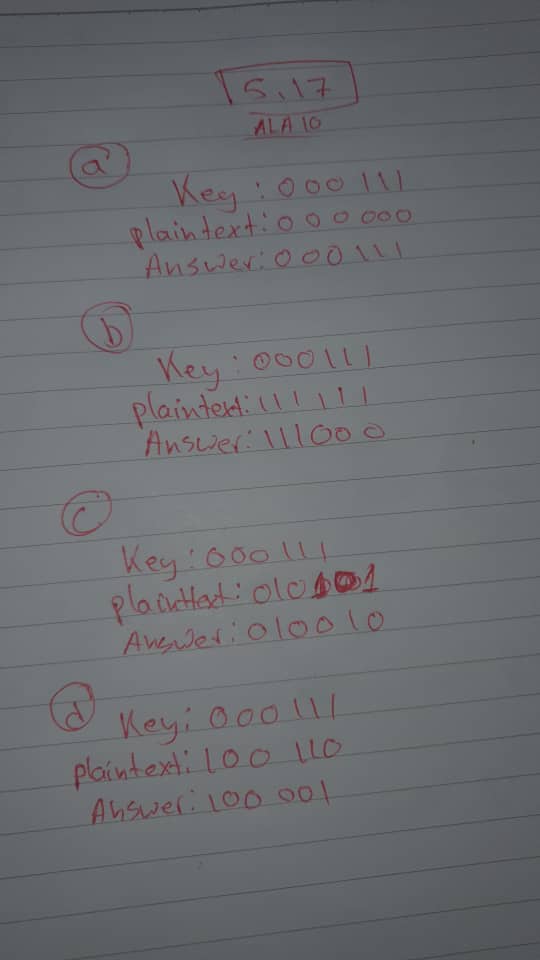 5.17
ALA 10
a
Key: 000111
plaintext: 000000
Answer: 000111
b
Key: 000111
plaintext: 111111
Answer: 111000
c
Key: 000111
plainttext: 010101
Answer: 010010
d
Key: 000111
plaintext: 100 110
Answer: 100 001